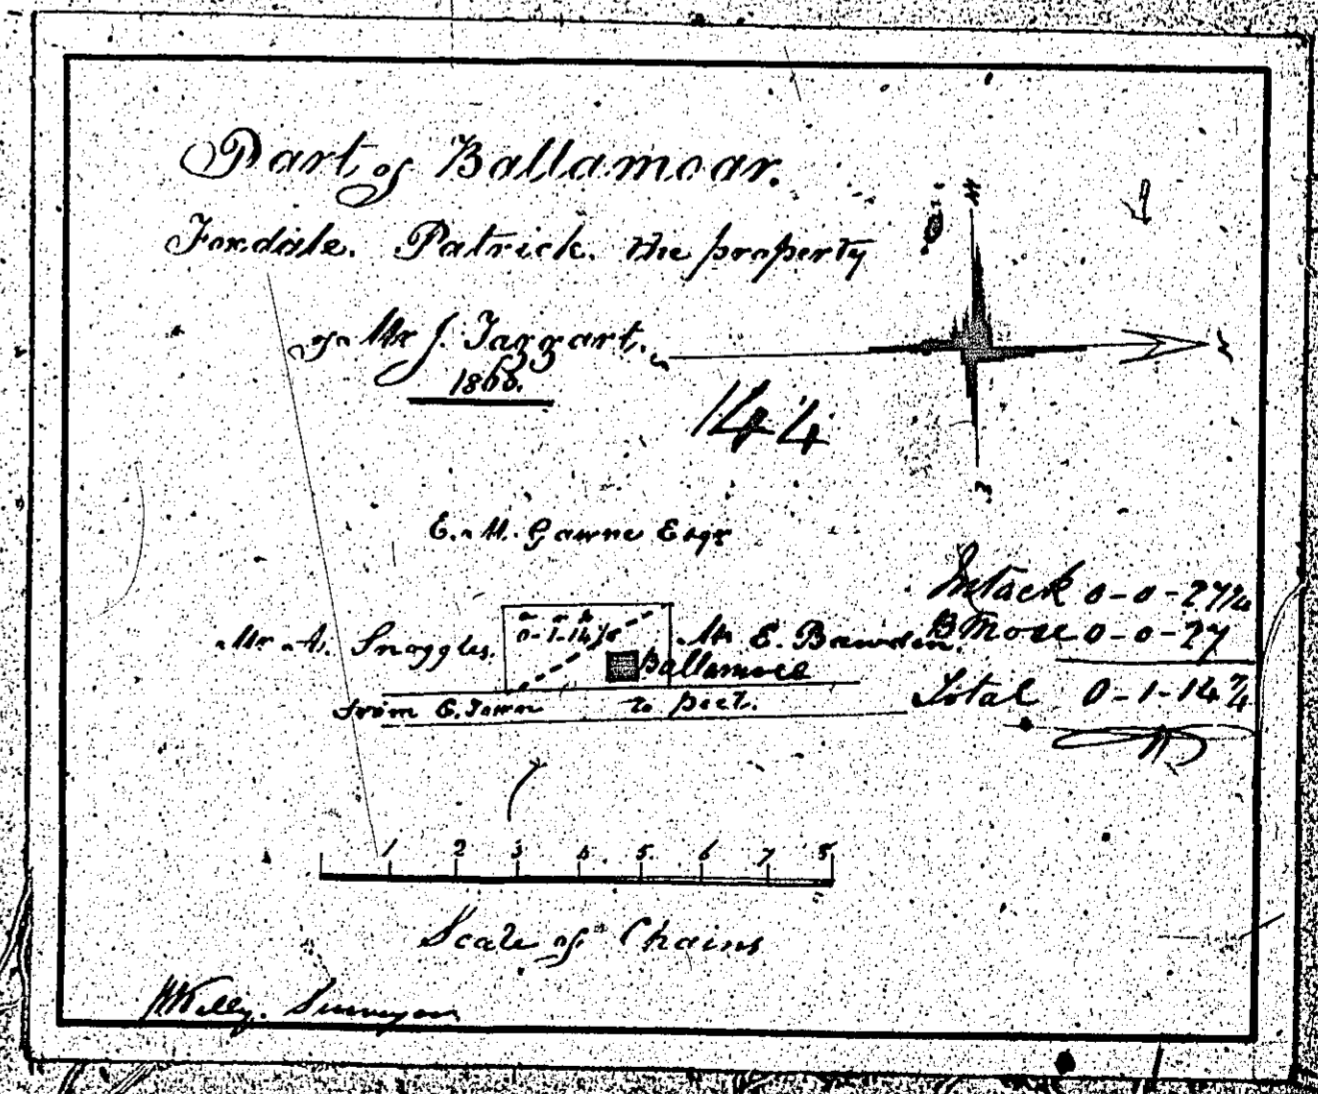 Part of Ballamoar.
Foxdale. Patrick. the property
of Mr J. Taggart.
144
E. M. Gawne Esqr
Mr A. Snaggles.
0-1-14¾
Mr E. Bawden.
Ballamore
From C. Town to Peel.
Intack 0-0-27¾
BMore 0-0-27
Total 0-1-14¾
1 2 3 4 5 6 7 8
Scale of Chains
Kelly. Surveyor